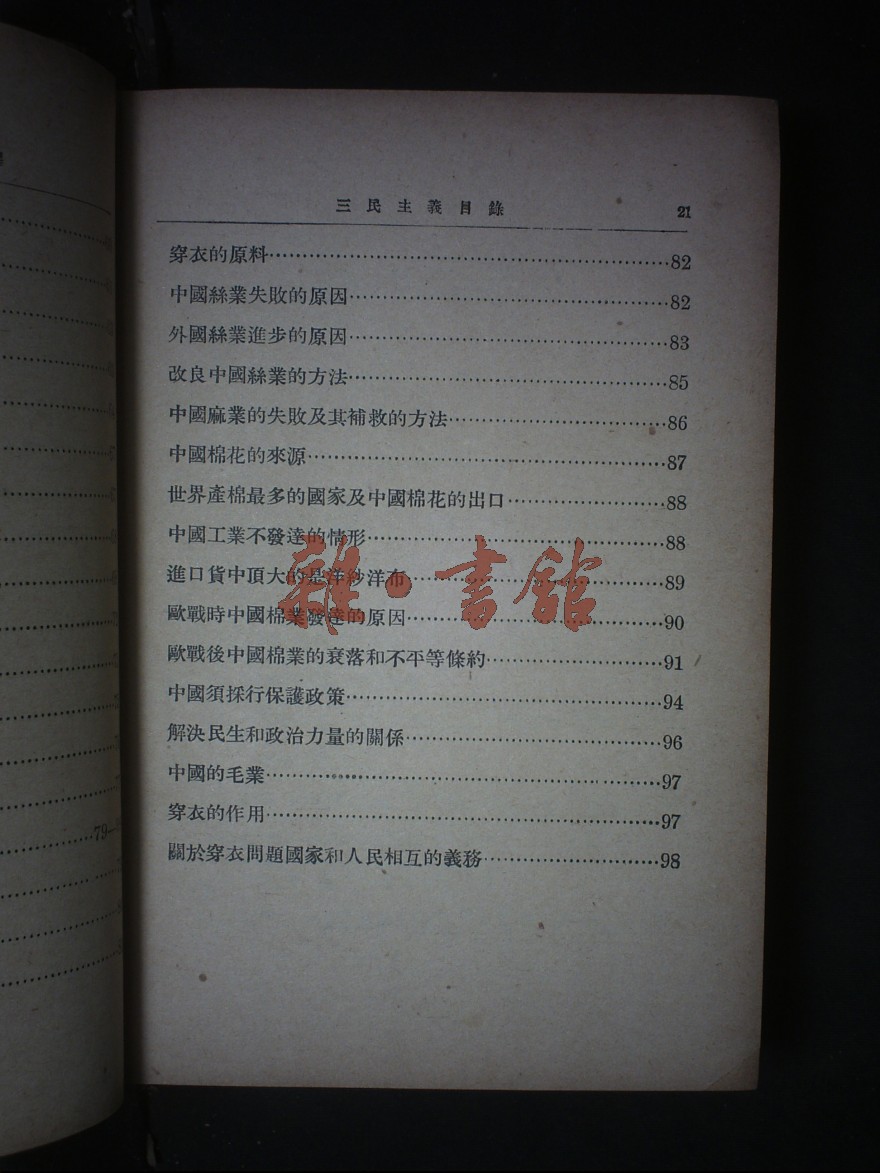 三民主義目錄 21
穿衣的原料……82
中國絲業失敗的原因……82
外國絲業進步的原因……83
改良中國絲業的方法……85
中國麻業的失敗及其補救的方法……86
中國棉花的來源……87
世界產棉最多的國家及中國棉花的出口……88
中國工業不發達的情形……88
進口貨中頂大的是洋紗洋布……89
歐戰時中國棉業發達的原因……90
歐戰後中國棉業的衰落和不平等條約……91
中國須採行保護政策……94
解決民生和政治力量的關係……96
中國的毛業……97
穿衣的作用……97
關於穿衣問題國家和人民相互的義務……98
雜·書館
79